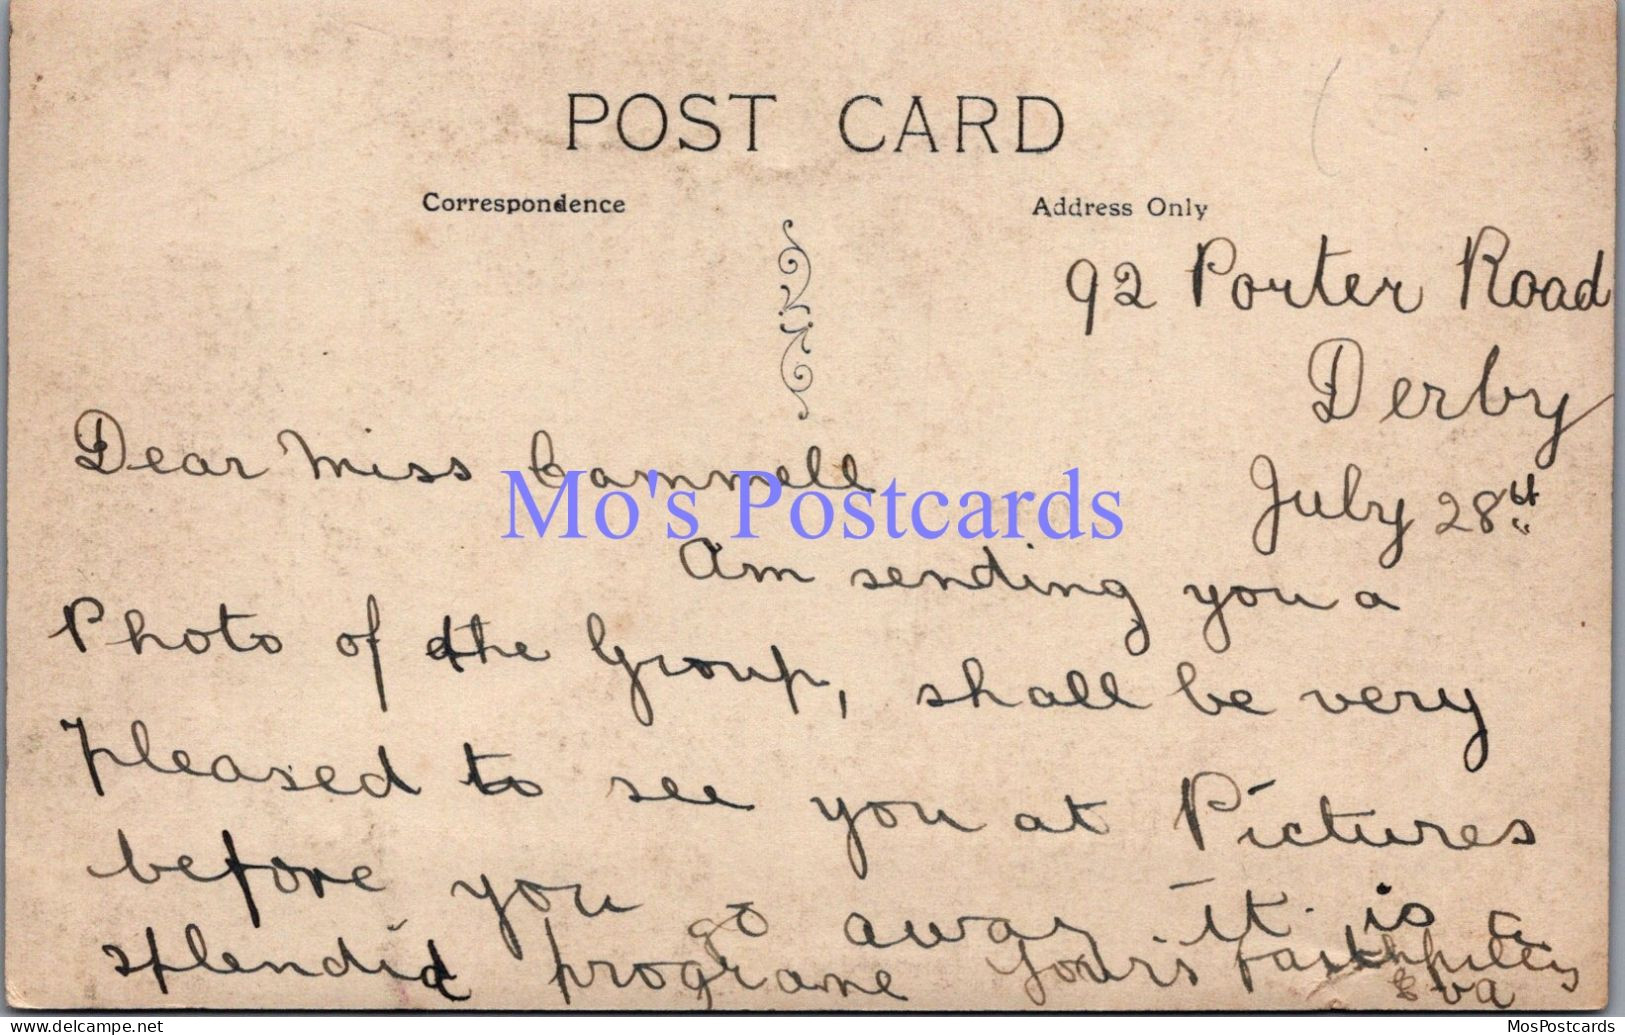 POST CARD
Correspondence
Address Only
92 Porter Road
Derby
July 28th
Dear Miss Cammell
Mo's Postcards
Am sending you a
Photo of the Group, shall be very
pleased to see you at Pictures
before you go away it is a
splendid programe Yours faithfully
Eva
delcampe.net
MosPostcards